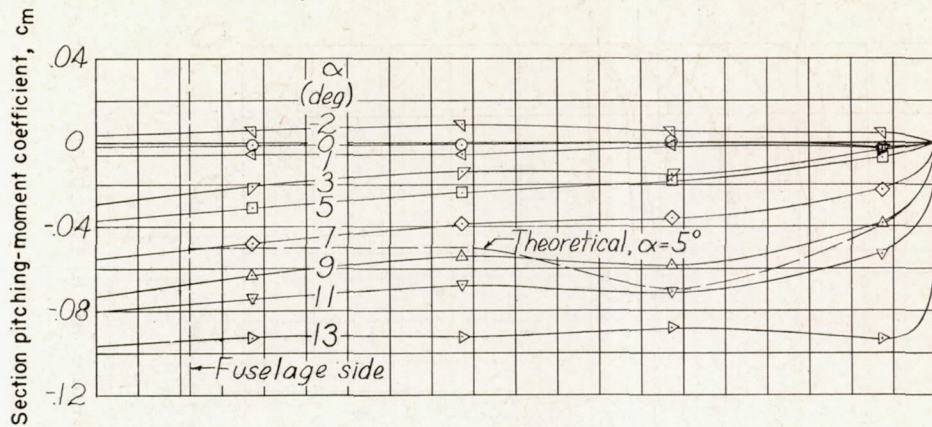 Section pitching-moment coefficient, cm
.04
0
-.04
-.08
-.12
α
(deg)
-2
0
1
3
5
7
9
11
13
Theoretical, α=5°
Fuselage side